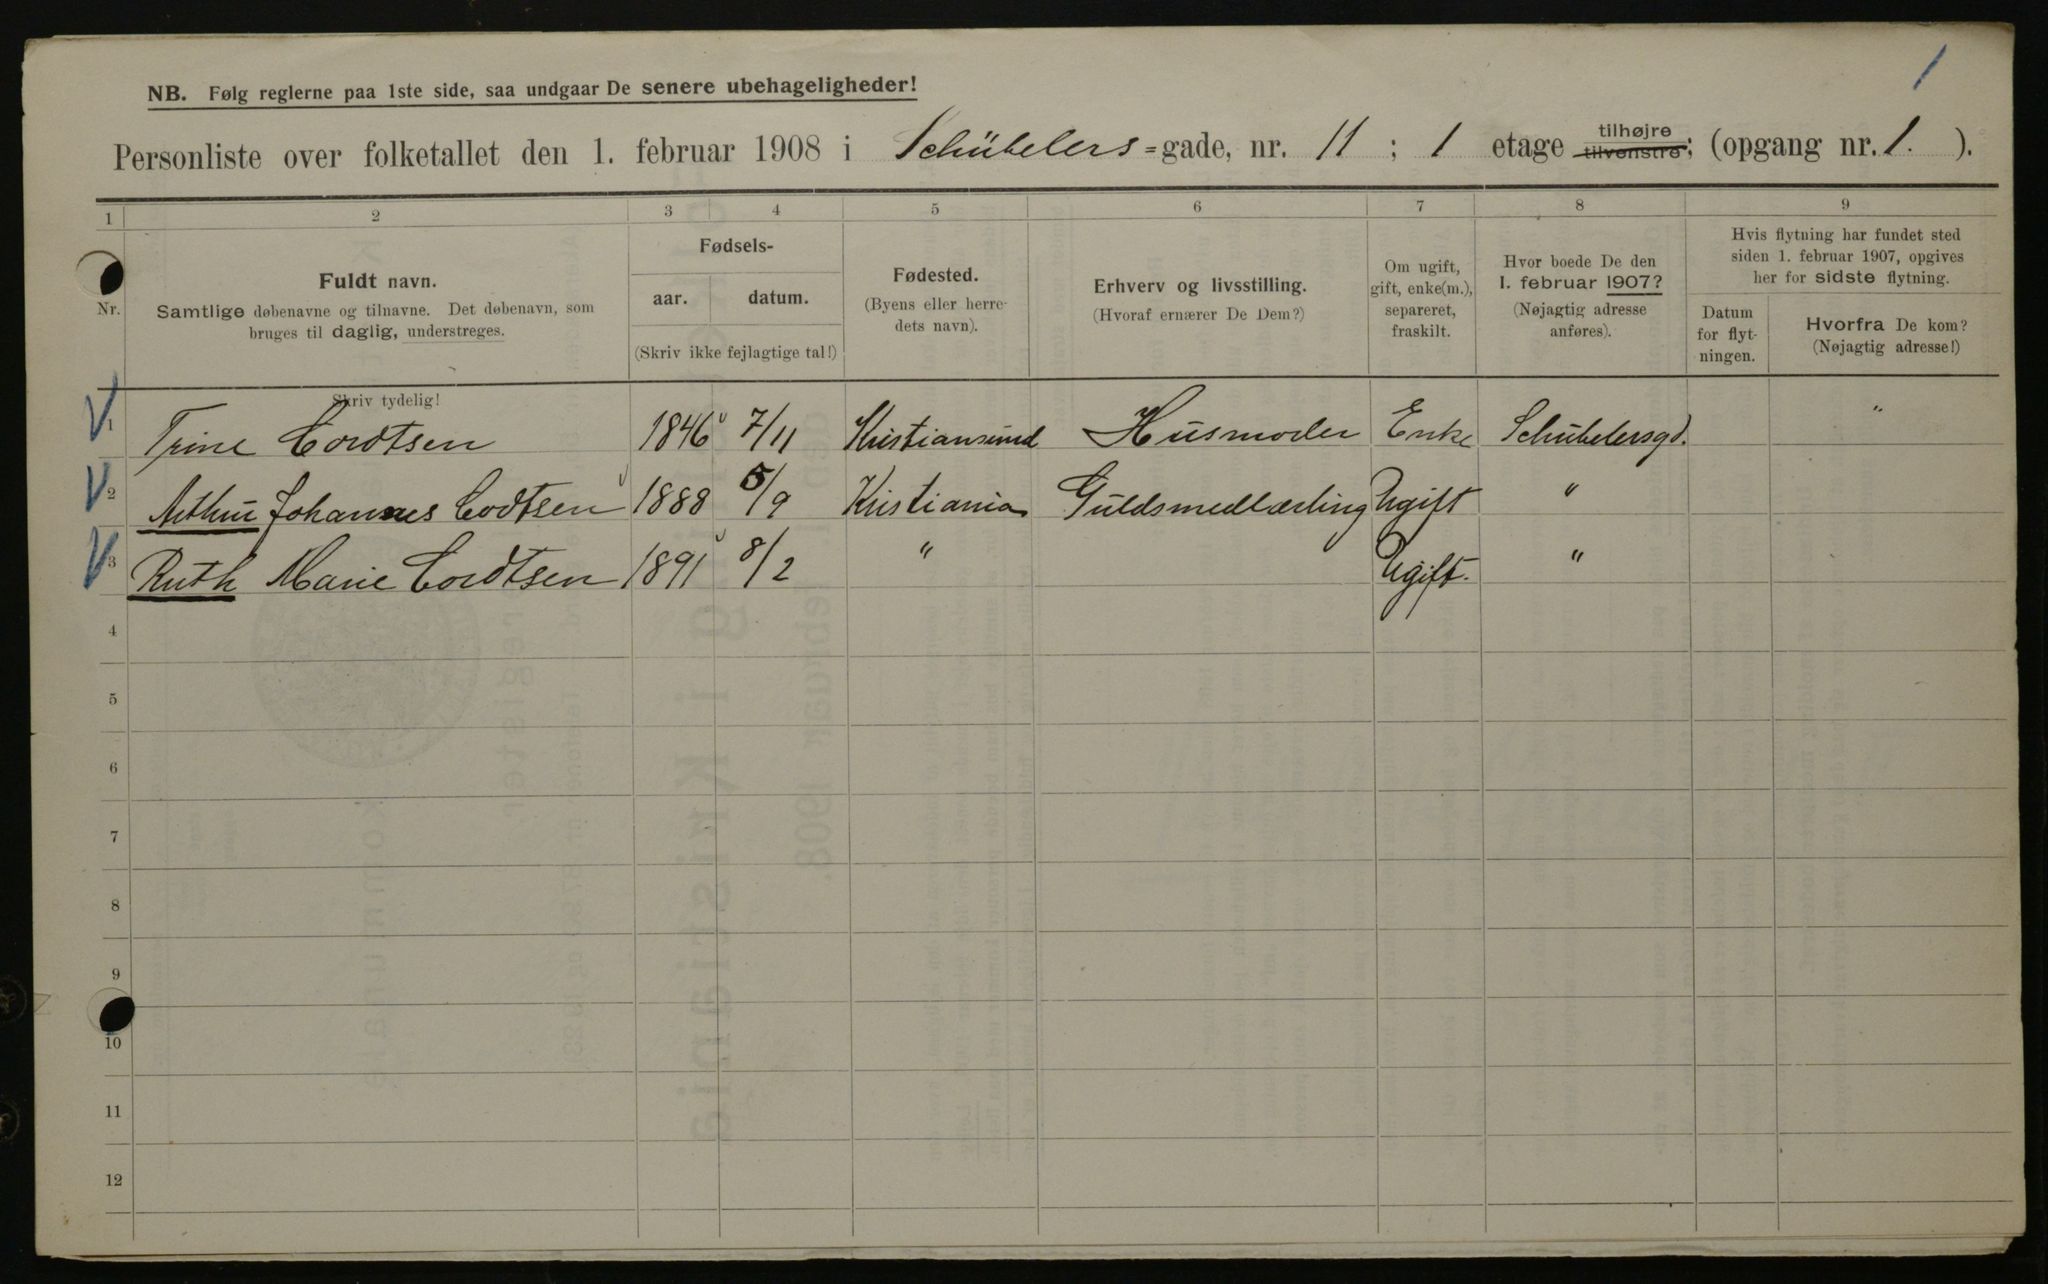 1
NB. Følg reglerne paa 1ste side, saa undgaar De senere ubehageligheder!
Personliste over folketallet den 1. februar 1908 i Schübelers=gade, nr. 11; 1 etage tilhøjre tilvenstre; (opgang nr. 1. ).
1 2 3 4 5 6 7 8 9
Nr.
Fuldt navn.
Samtlige døbenavne og tilnavne. Det døbenavn, som
bruges til daglig, understreges.
Skriv tydelig!
Fødsels-
aar. datum.
(Skriv ikke fejlagtige tal!)
Fødested.
(Byens eller herre-
dets navn).
Erhverv og livsstilling.
(Hvoraf ernærer De Dem?)
Om ugift,
gift, enke(m.),
separeret,
fraskilt.
Hvor boede De den
1. februar 1907?
(Nøjagtig adresse
anføres).
Hvis flytning har fundet sted
siden 1. februar 1907, opgives
her for sidste flytning.
Datum
for flyt-
ningen.
Hvorfra De kom?
(Nøjagtig adresse!)
1 Trine Cordtsen 1846 7/11 Kristiansund Husmoder Enke Schubelersgd. "
2 Arthur Johannes Cordtsen 1888 5/9 Kristiania Guldsmedlærling Ugift "
3 Ruth Marie Cordtsen 1891 8/2 " Ugift. "
4
5
6
7
8
9
10
11
12